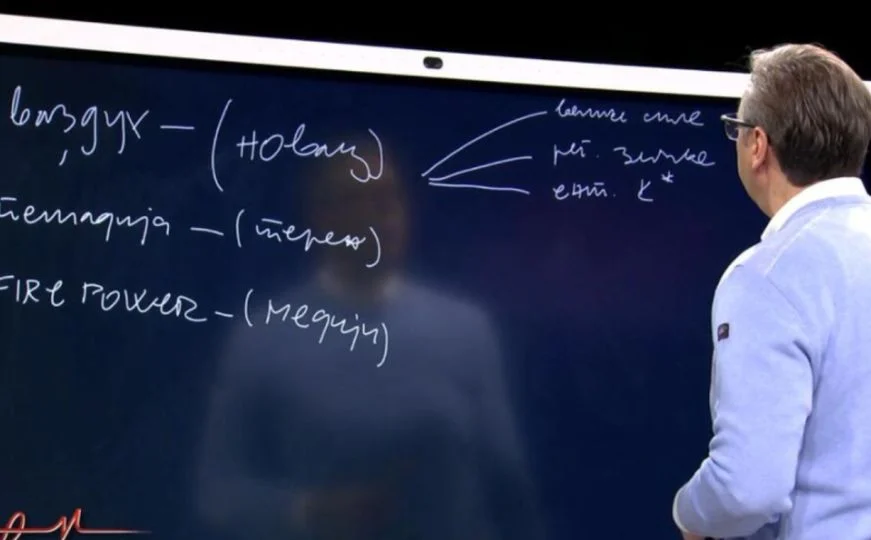 Ваздух — (новац)
велике силе
рег. земље
ент. К*
пешадија — (терен)
FIRE POWER — (медији)